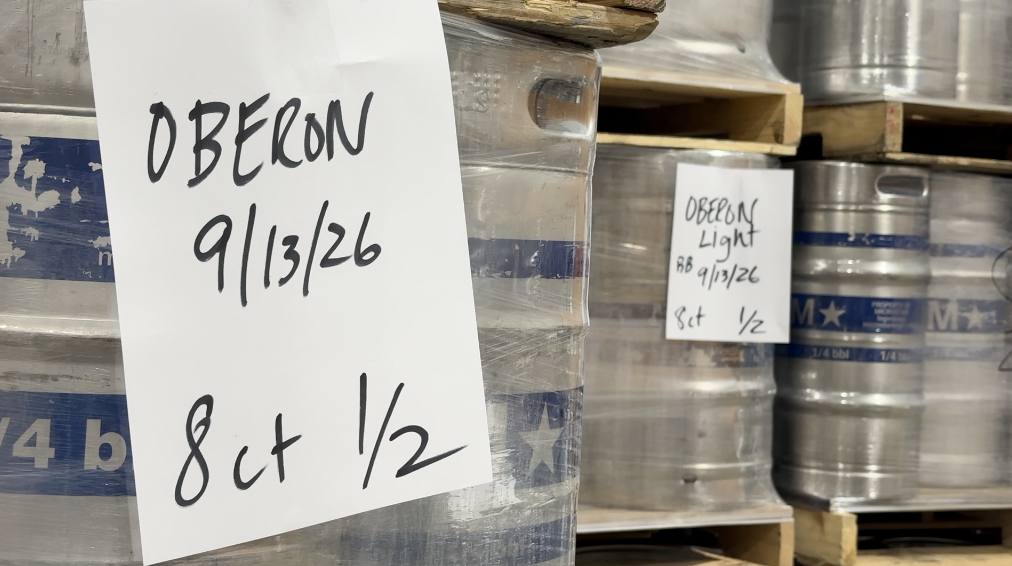 OBERON
9/13/26
8ct 1/2
/4 b
m
OBERON
Light
BB 9/13/26
8ct 1/2
M★
PROPERTY OF
1/4 bbl 1/4
M★